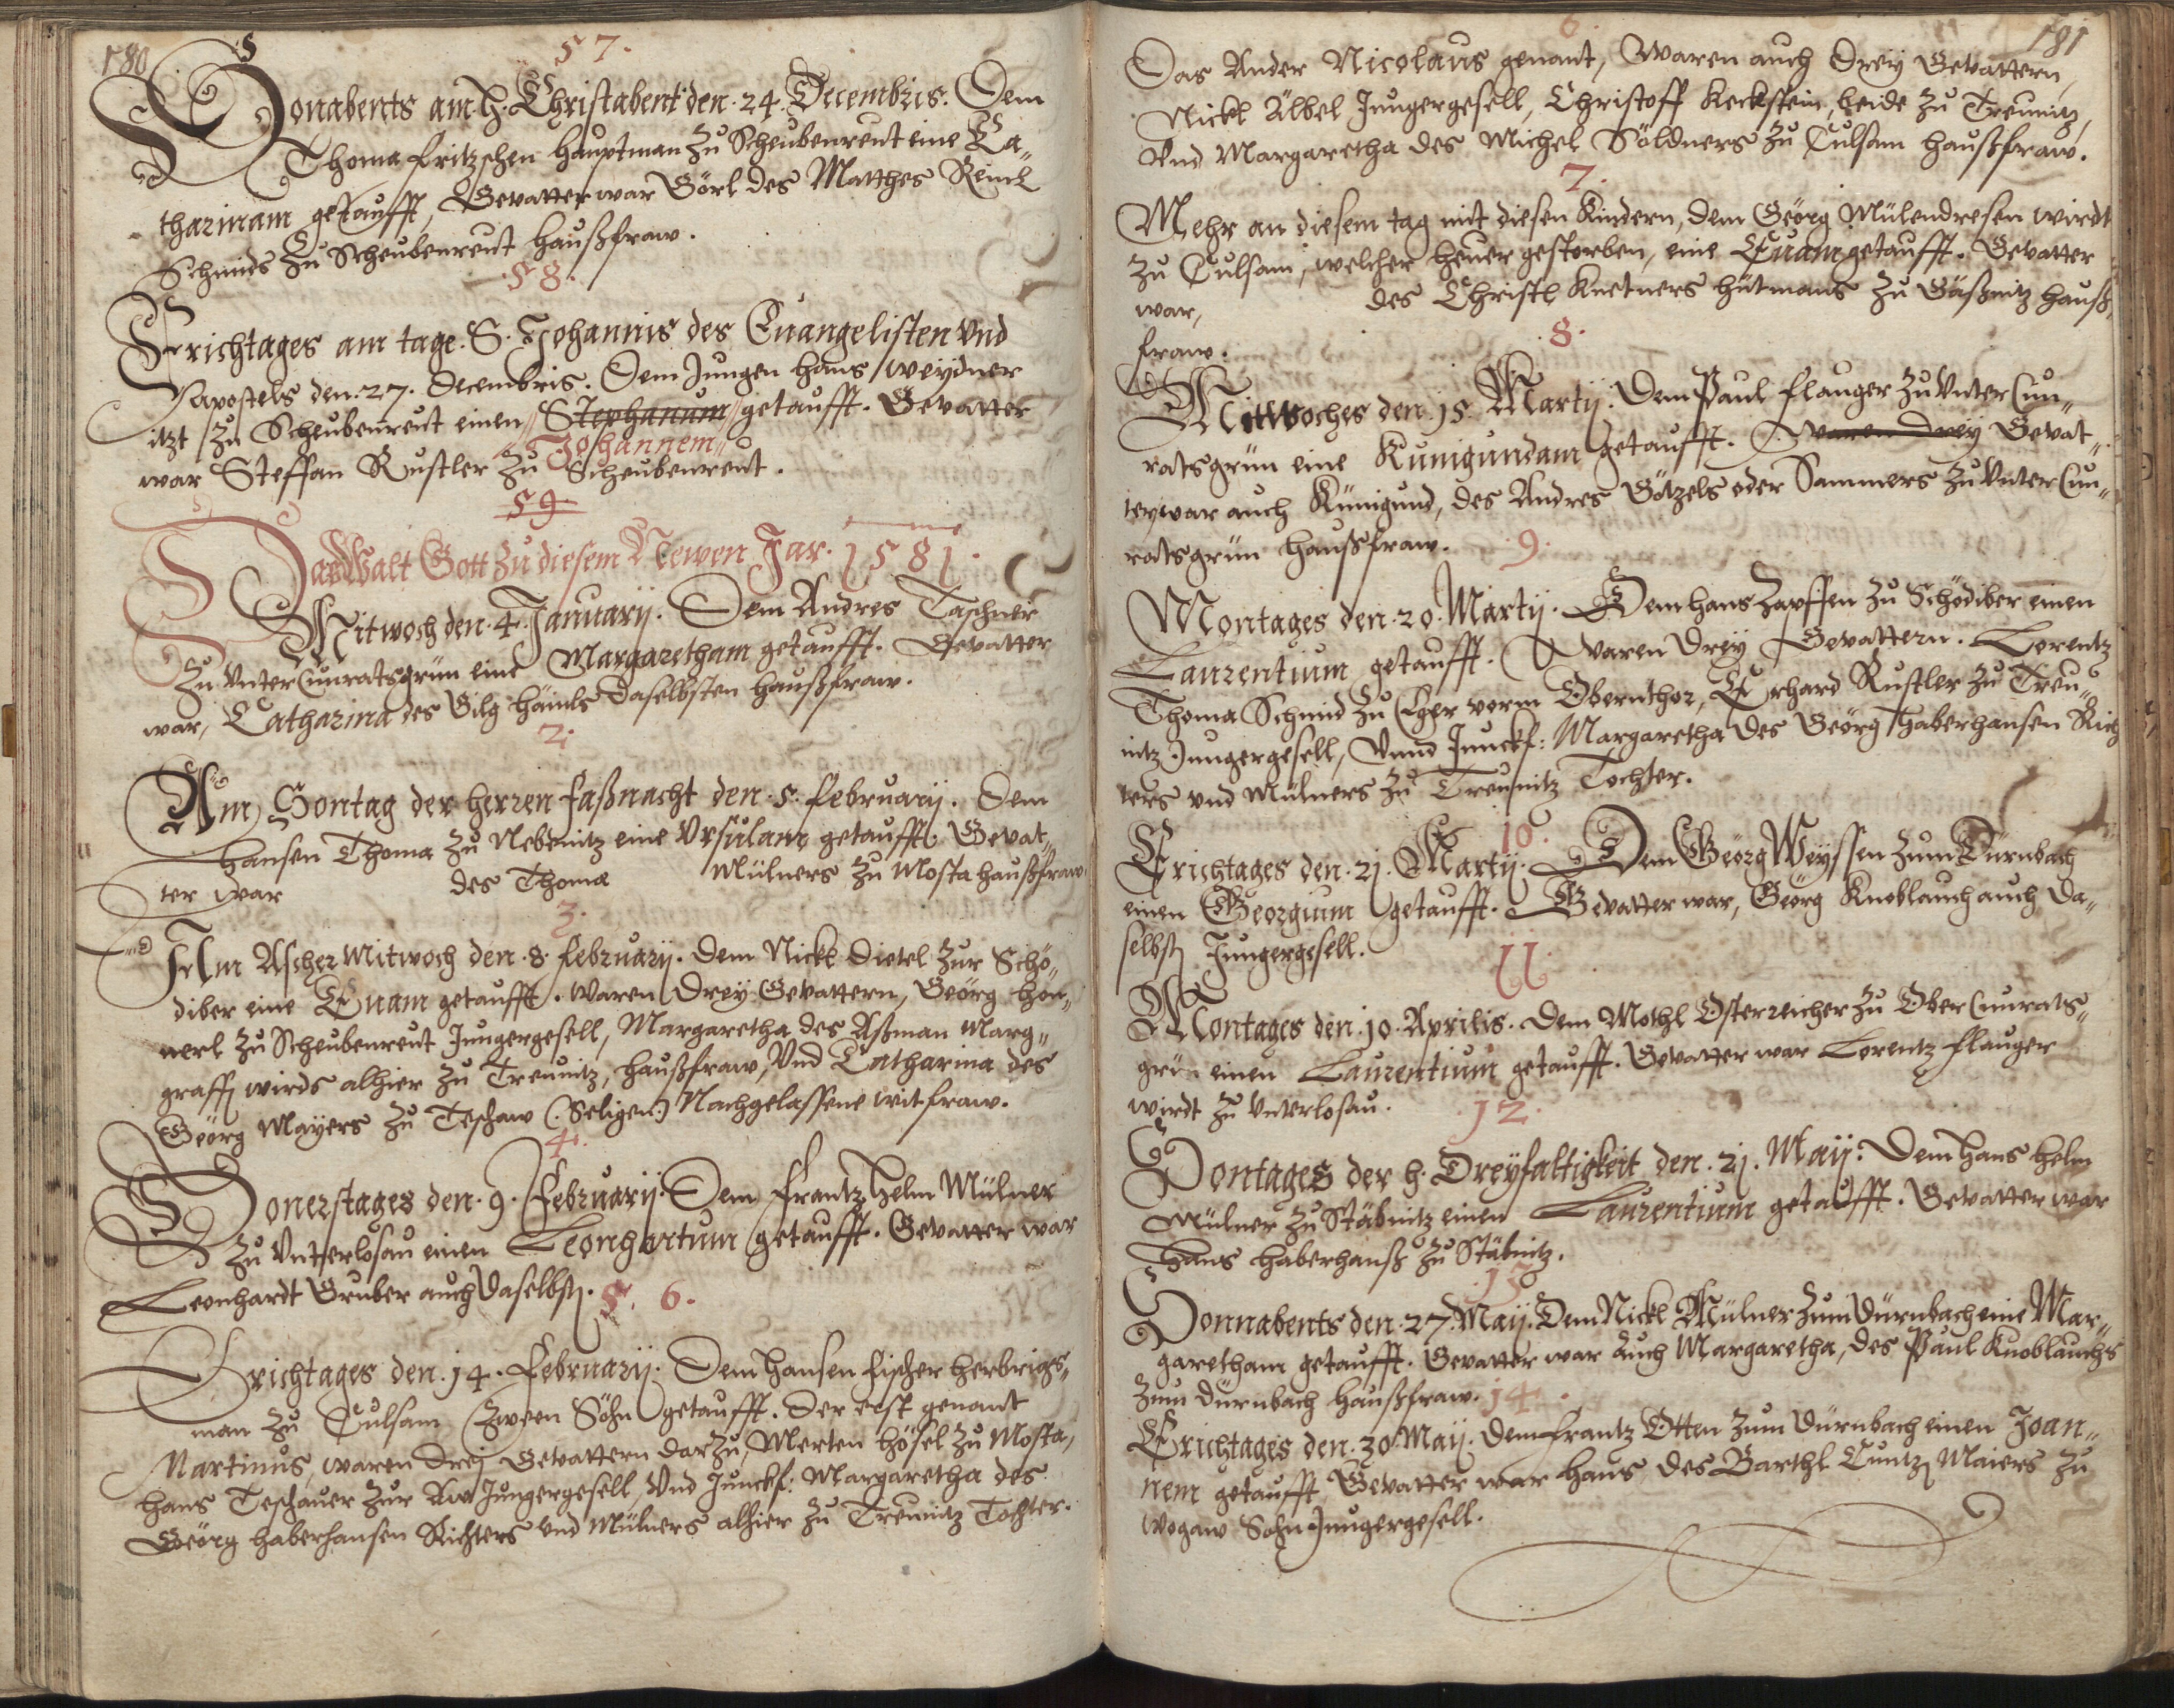 180
57.
Sonabents am h. Christabent den. 24. Decembris. Dem
Thoma Fritzschen Hauptman zu Scheubenreut eine Ca„
tharinam getaufft, Gevatter war Görl des Matthes Reinl
Schmids zu Scheubenreut Haußfraw.
58.
Erichtages am tage. S. Johannis des Euangelisten vnd
Apostels den. 27. Decembris. Dem Jungen Hans Weydner
itzt zu Scheubenreut einen Stephanum getaufft. Gevatter
Johannem
war Steffan Rustler zu Scheubenreut.
59
Das Walt Gott zu diesem Newen Jar. 1581.
Mitwoch den. 4. Januarij. Dem Andres Taschner
zu Vnter Cunratsgrün eine Margaretham getaufft. Gevatter
war, Catharina des Gilg Häinls daselbsten Haußfraw.
2.
Am Sontag der Herren Faßnacht den. 5. Februarij. Dem
Hansen Thoma zu Nebenitz eine Vrsulam getaufft. Gevat„
ter war des Thoma Mülners zu Mosta Haußfraw
3.
Am Ascher Mitwoch den. 8. Februarij. Dem Nickl Dietel zur Schö„
diber eine Euam getaufft. Waren Drey Gevattern, Geörg Hon„
nerl zu Scheubenreut Jungergesell, Margaretha des Aßman Marg„
graff wirds alhier zu Treunitz, Haußfraw, Vnd Catharina des
Geörg Mayers zu Teschaw (: Seligen:) Nachgelassene witfraw.
4.
Donerstages den. 9. Februarij. Dem Frantz Helm Mülner
zu Vnterlosau einen Leonhartum getaufft. Gevatter war
Leonhardt Gruber auch daselbst.
5. 6.
Erichtages den. 14. Februarij. Dem Hansen Fischer Herbrigs„
man zu Culsam Zween Söhn getaufft. Der erst genant
Martinus, waren drej Gevattern darzu, Merten Hösel zu Mosta,
Hans Teschauer zur Aw Jungergesell, Vnd Junckf: Margaretha des
Geörg Haberhansen Richters vnd Mülners alhier zu Treunitz Tochter.
181
6.
Das Ander Nicolaus genant, Waren auch Drey Gevattern,
Nickl Älbel Jungergesell, Christoff Keckstein, beide zu Treunitz,
Vnd Margaretha des Michel Söldners zu Culsam Haußfraw.
7.
Mehr an diesem tag mit diesen Kindern, Dem Geörg Mülendresen wirdt
zu Culsam, welcher heuer gestorben, eine Euam getaufft. Gevatter
war, des Christl Knetners Hütmans zu Gäßnitz Hauß„
fraw.
8.
Mittwoches den. 15. Martij. Dem Paul Flauger zu Vnter Cun„
ratsgrün eine Kunigundam getaufft. Waren Drey Gevat„
ter war auch Künigund, des Andres Götzels oder Sammers zu Vnter Cun„
ratsgrün Haußfraw.
9.
Montages den. 20. Martij. Dem Hans Zapffen zu Schödiber einen
Laurentium getaufft. Waren Drey Gevattern. Lorentz
Thoma Schmid zu Eger vorm Obernthor, Erhard Rustler zu Treu„
nitz Jungergesell, Vnnd Junckf: Margaretha des Geörg Haberhansen Rich
ters vnd Mülners zu Treunitz Tochter.
10.
Erichtages den. 21. Martij. Dem Geörg Weyssen zum Dürnbach
einen Georgium getaufft. Gevatter war, Geörg Knoblauch auch da„
selbst Jungergesell.
11.
Montages den. 10. Aprilis. Dem Mothl Osterreicher zu Ober Cunrats„
grün einen Laurentium getaufft. Gevatter war Lorentz Flauger
wirdt zu Vnterlosau.
12.
Sontages der h. Dreyfaltigkeit den. 21. Maij. Dem Hans Helm
Mülner zu Stäbnitz einen Laurentium getaufft. Gevatter war
Hans Haberhanß zu Stäbnitz.
13
Sonnabents den. 27. Maij. Dem Nickl Mülner zum Dürnbach eine Mar„
garetham getaufft. Gevatter war auch Margaretha, des Paul Knoblauchs
zum Dürnbach Haußfraw.
14.
Erichtages den. 30. Maij. Dem Frantz Otten zum Dürnbach einen Joan„
nem getaufft Gevatter war Hans des Barthl Cuntz Maiers zu
Wogaw Sohn Jungergesell.